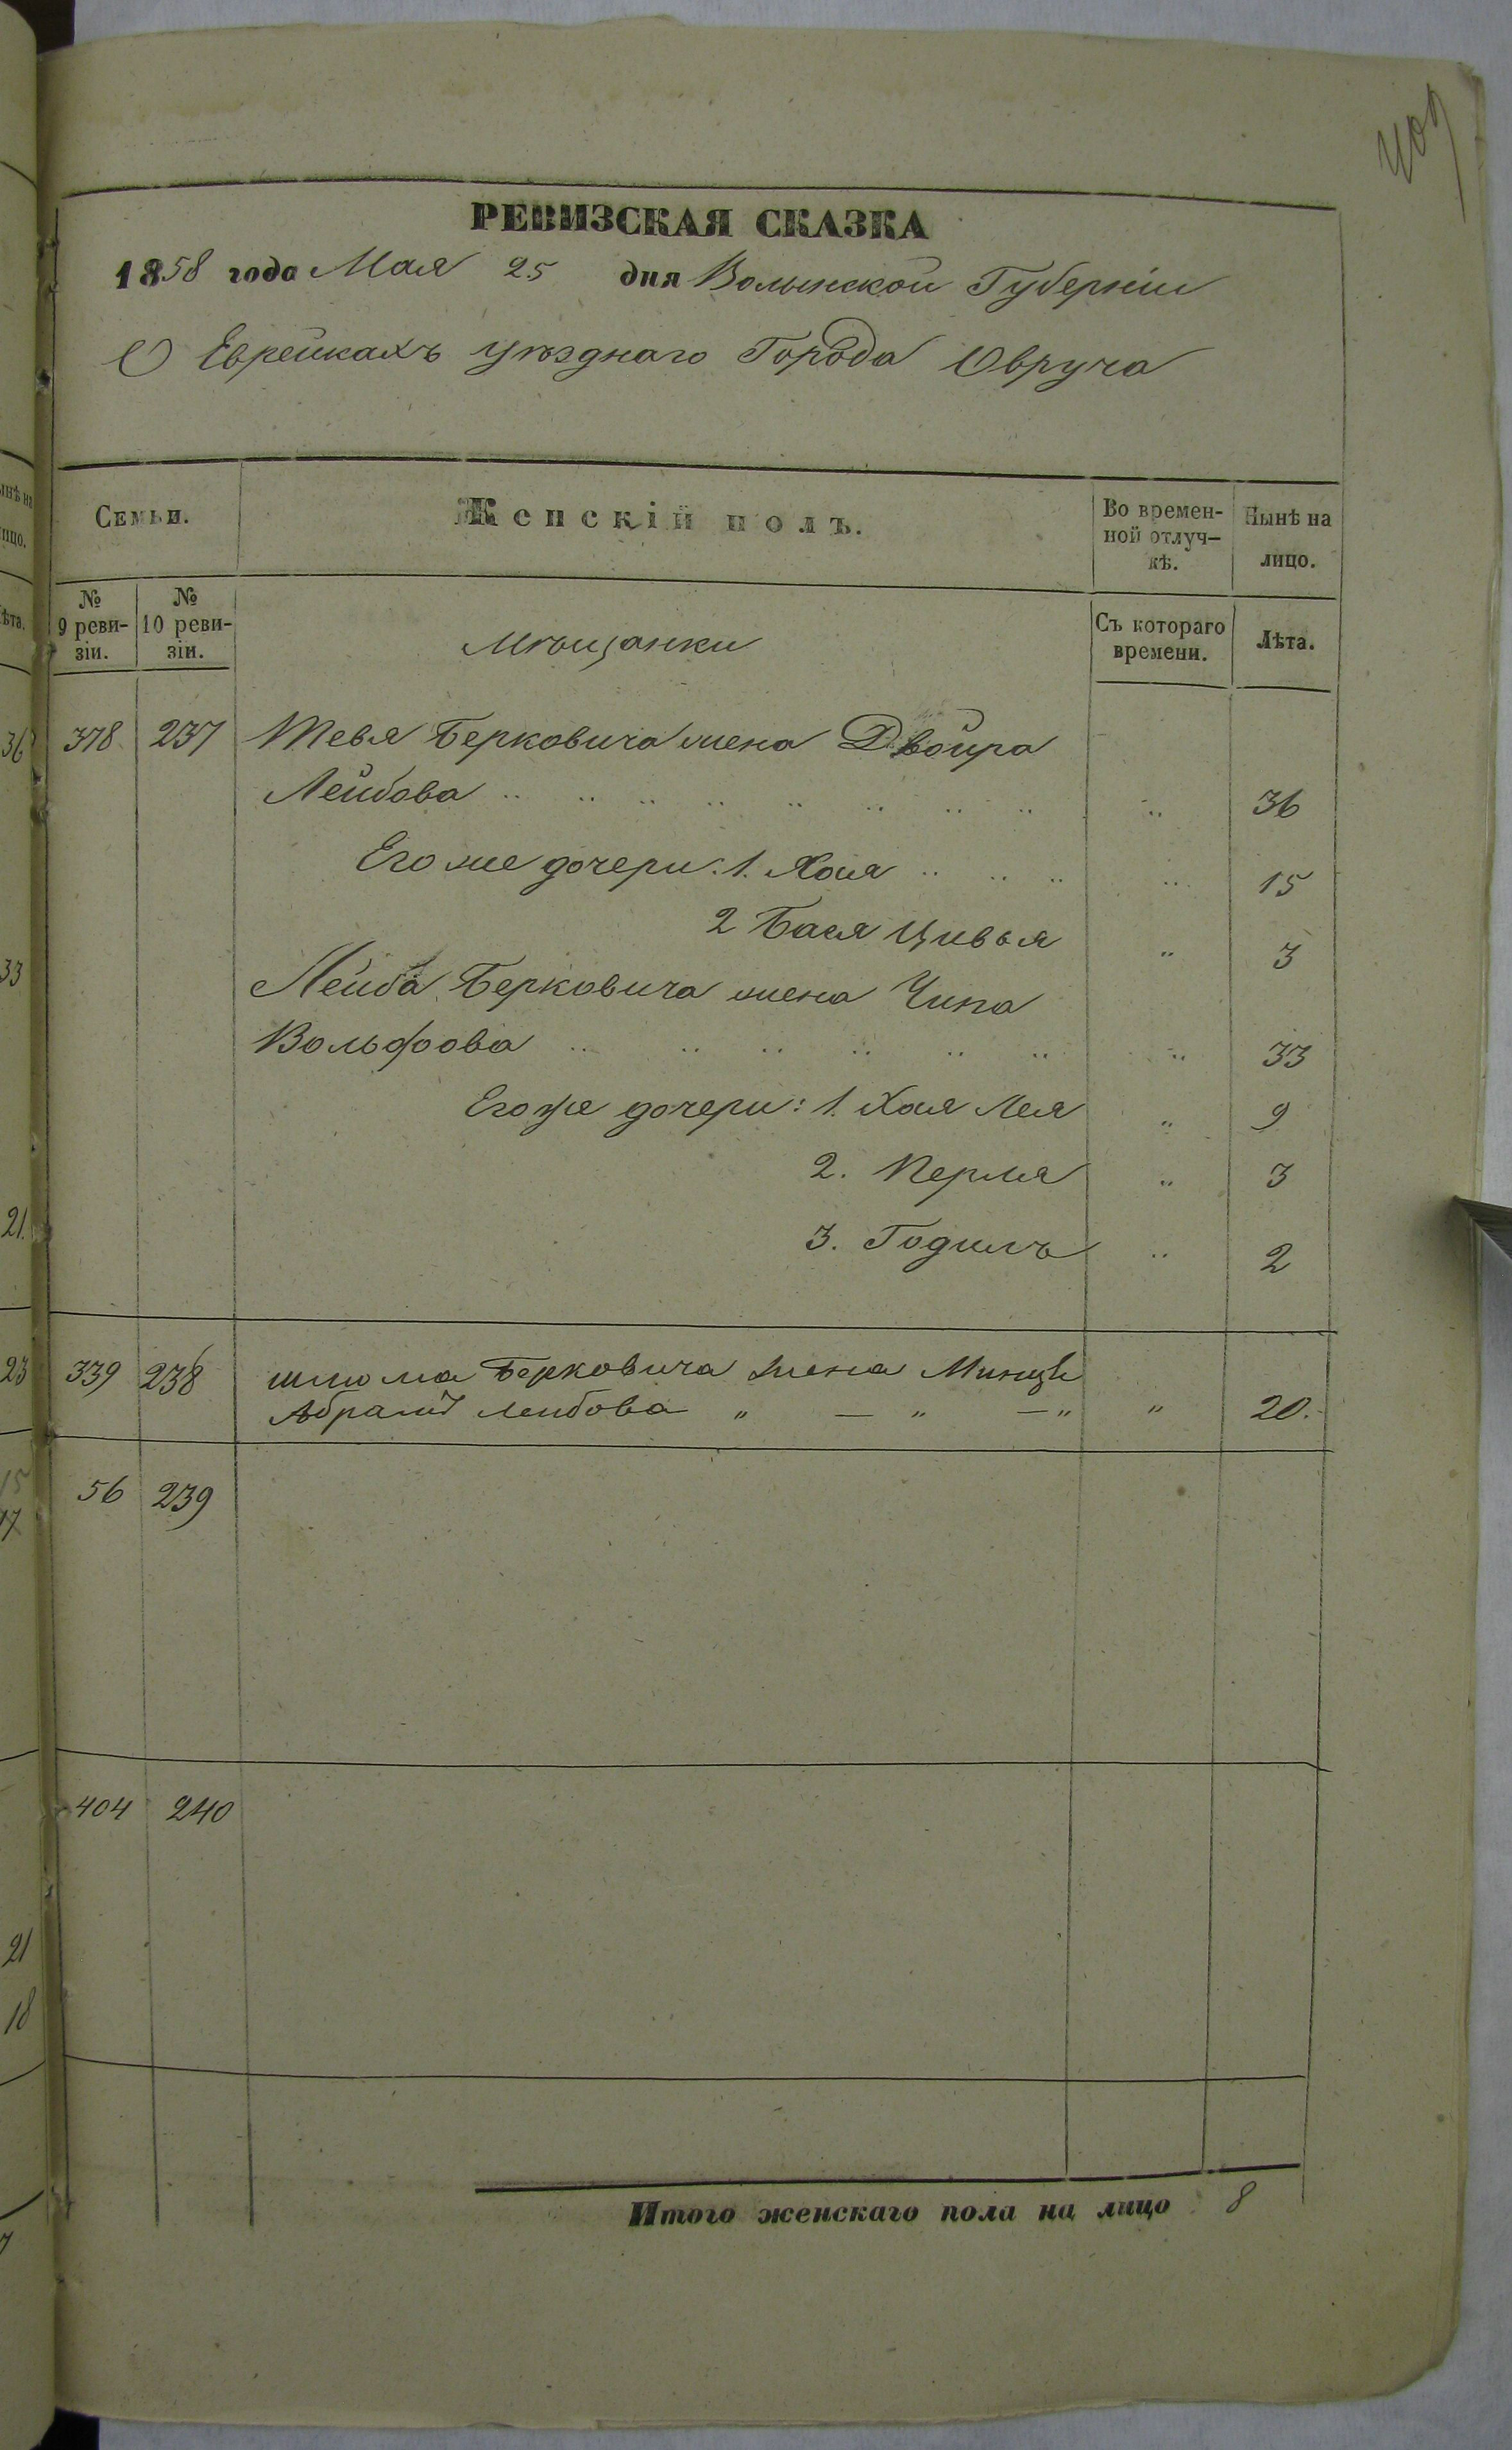 409
РЕВИЗСКАЯ СКАЗКА
1858 года Мая 25 дня Волынской Губерніи
О Еврейкахъ уѣзднаго Города Овруча
Семьи.
Женскій полъ.
Во времен-
ной отлуч-
кѣ.
Нынѣ на
лицо.
№
9 реви-
зіи.
№
10 реви-
зіи.
Мѣщанки
Съ котораго
времени.
Лѣта.
378 237 Тевя Берковича жена Двойра
Лейбова „ 36
Его же дочери: 1. Хая „ 15
2 Бася Цивья „ 3
Лейба Берковича жена Чипа
Вольфова „ 33
Его же дочери: 1. Хая Лея „ 9
2. Перля „ 3
3. Годиль „ 2
339 238 шлиома Берковича жена Минцѣ
Абрамъ Лейбова „ — „ — „ „ 20.
56 239
404 240
Итого женскаго пола на лицо 8
36
33
21.
23
15
17
21
18